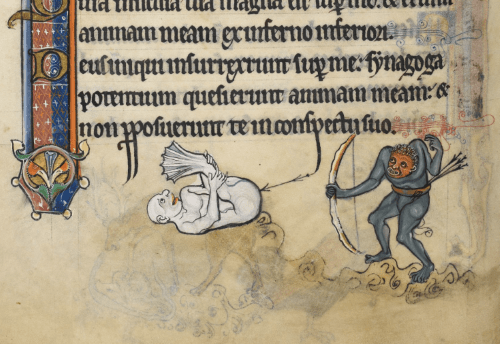 tua magna est sup me: & eruisti
animam meam ex inferno inferiori.
Deus iniqui insurrexerunt sup me: synagoga
potentium quesierunt animam meam: &
non pposuerunt te in conspectu suo.